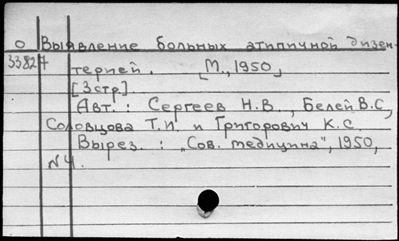 О Выявление больных атипичной дизен-
33827 терией. [М., 1950,
[3стр]
Авт.: Сергеев Н.В., Белей В.С,
Соловцова Т.И. и Григорович К.С.
Вырез.: „Сов. медицина", 1950,
№4.